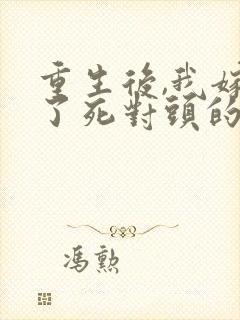 重生後,我嫁
了死對頭的
馮勲